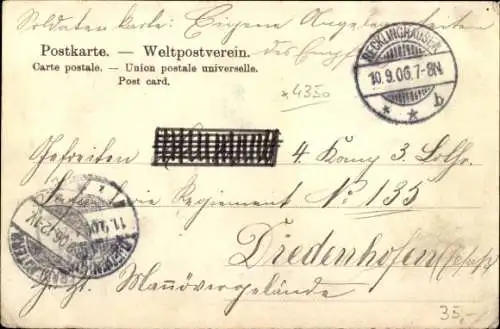 Soldaten Karte: Eigene Angelegenheiten
des Empf
Postkarte. — Weltpostverein.
Carte postale. — Union postale universelle.
Post card.
RECKLINGHAUSEN
10.9.06.7-8N
* * b
*4350
Gefreiten 4. Komp 3. Lothr.
Infanterie Regiment No. 135
Diedenhofen
Manövergelände
35,-